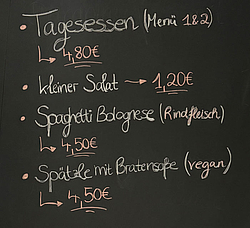 • Tagesessen (Menü 1&2)
↳ 4,80€
• kleiner Salat → 1,20€
• Spaghetti Bolognese (Rindfleisch)
↳ 4,50€
• Spätzle mit Bratensoße (vegan)
↳ 4,50€